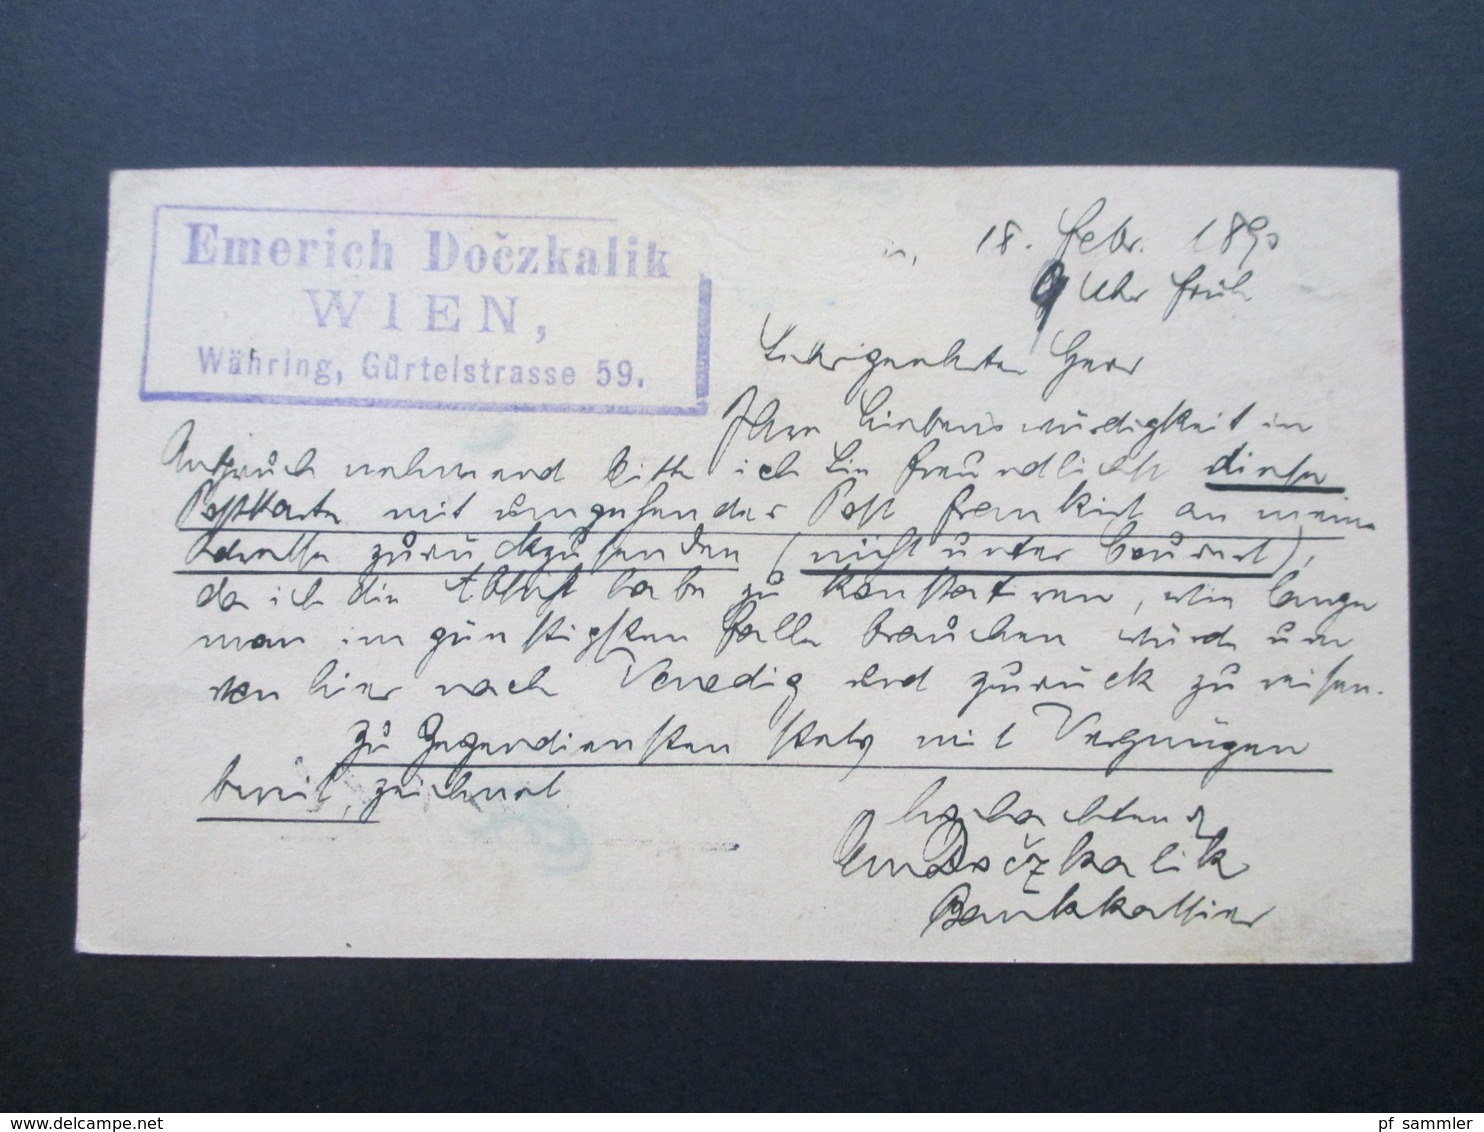 Emerich Dočzkalik
WIEN,
Währing, Gürtelstrasse 59.
18. Febr. 1890
9 Uhr früh
Sehrgeehrter Herr
Ihre Liebenswürdigkeit in
Anspruch nehmend bitte ich Sie freundlichst diese
Postkarte mit umgehender Post frankirt an meine
Adresse zurückzusenden (nicht unter Couvert),
da ich die Absicht habe zu konstatiren, wie lange
man im günstigsten Falle brauchen würde um
von hier nach Venedig und zurück zu reisen.
Zu Gegendiensten stets mit Vergnügen
bereit, zeichnet
hochachtend
Em Dočzkalik
Bankkassier
pf_sammler
www.delcampe.net